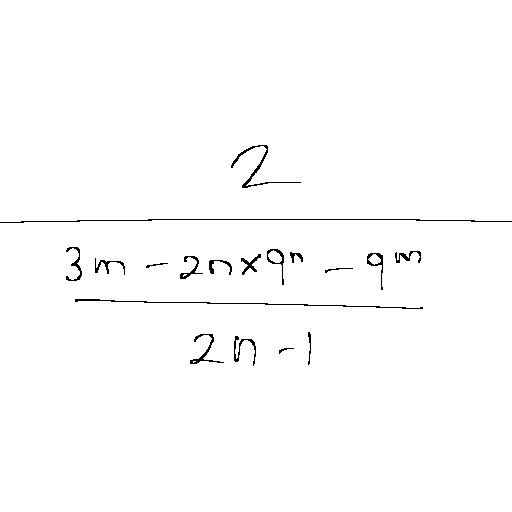 2
3m - 2n×9ⁿ - 9ᵐ
2n - 1